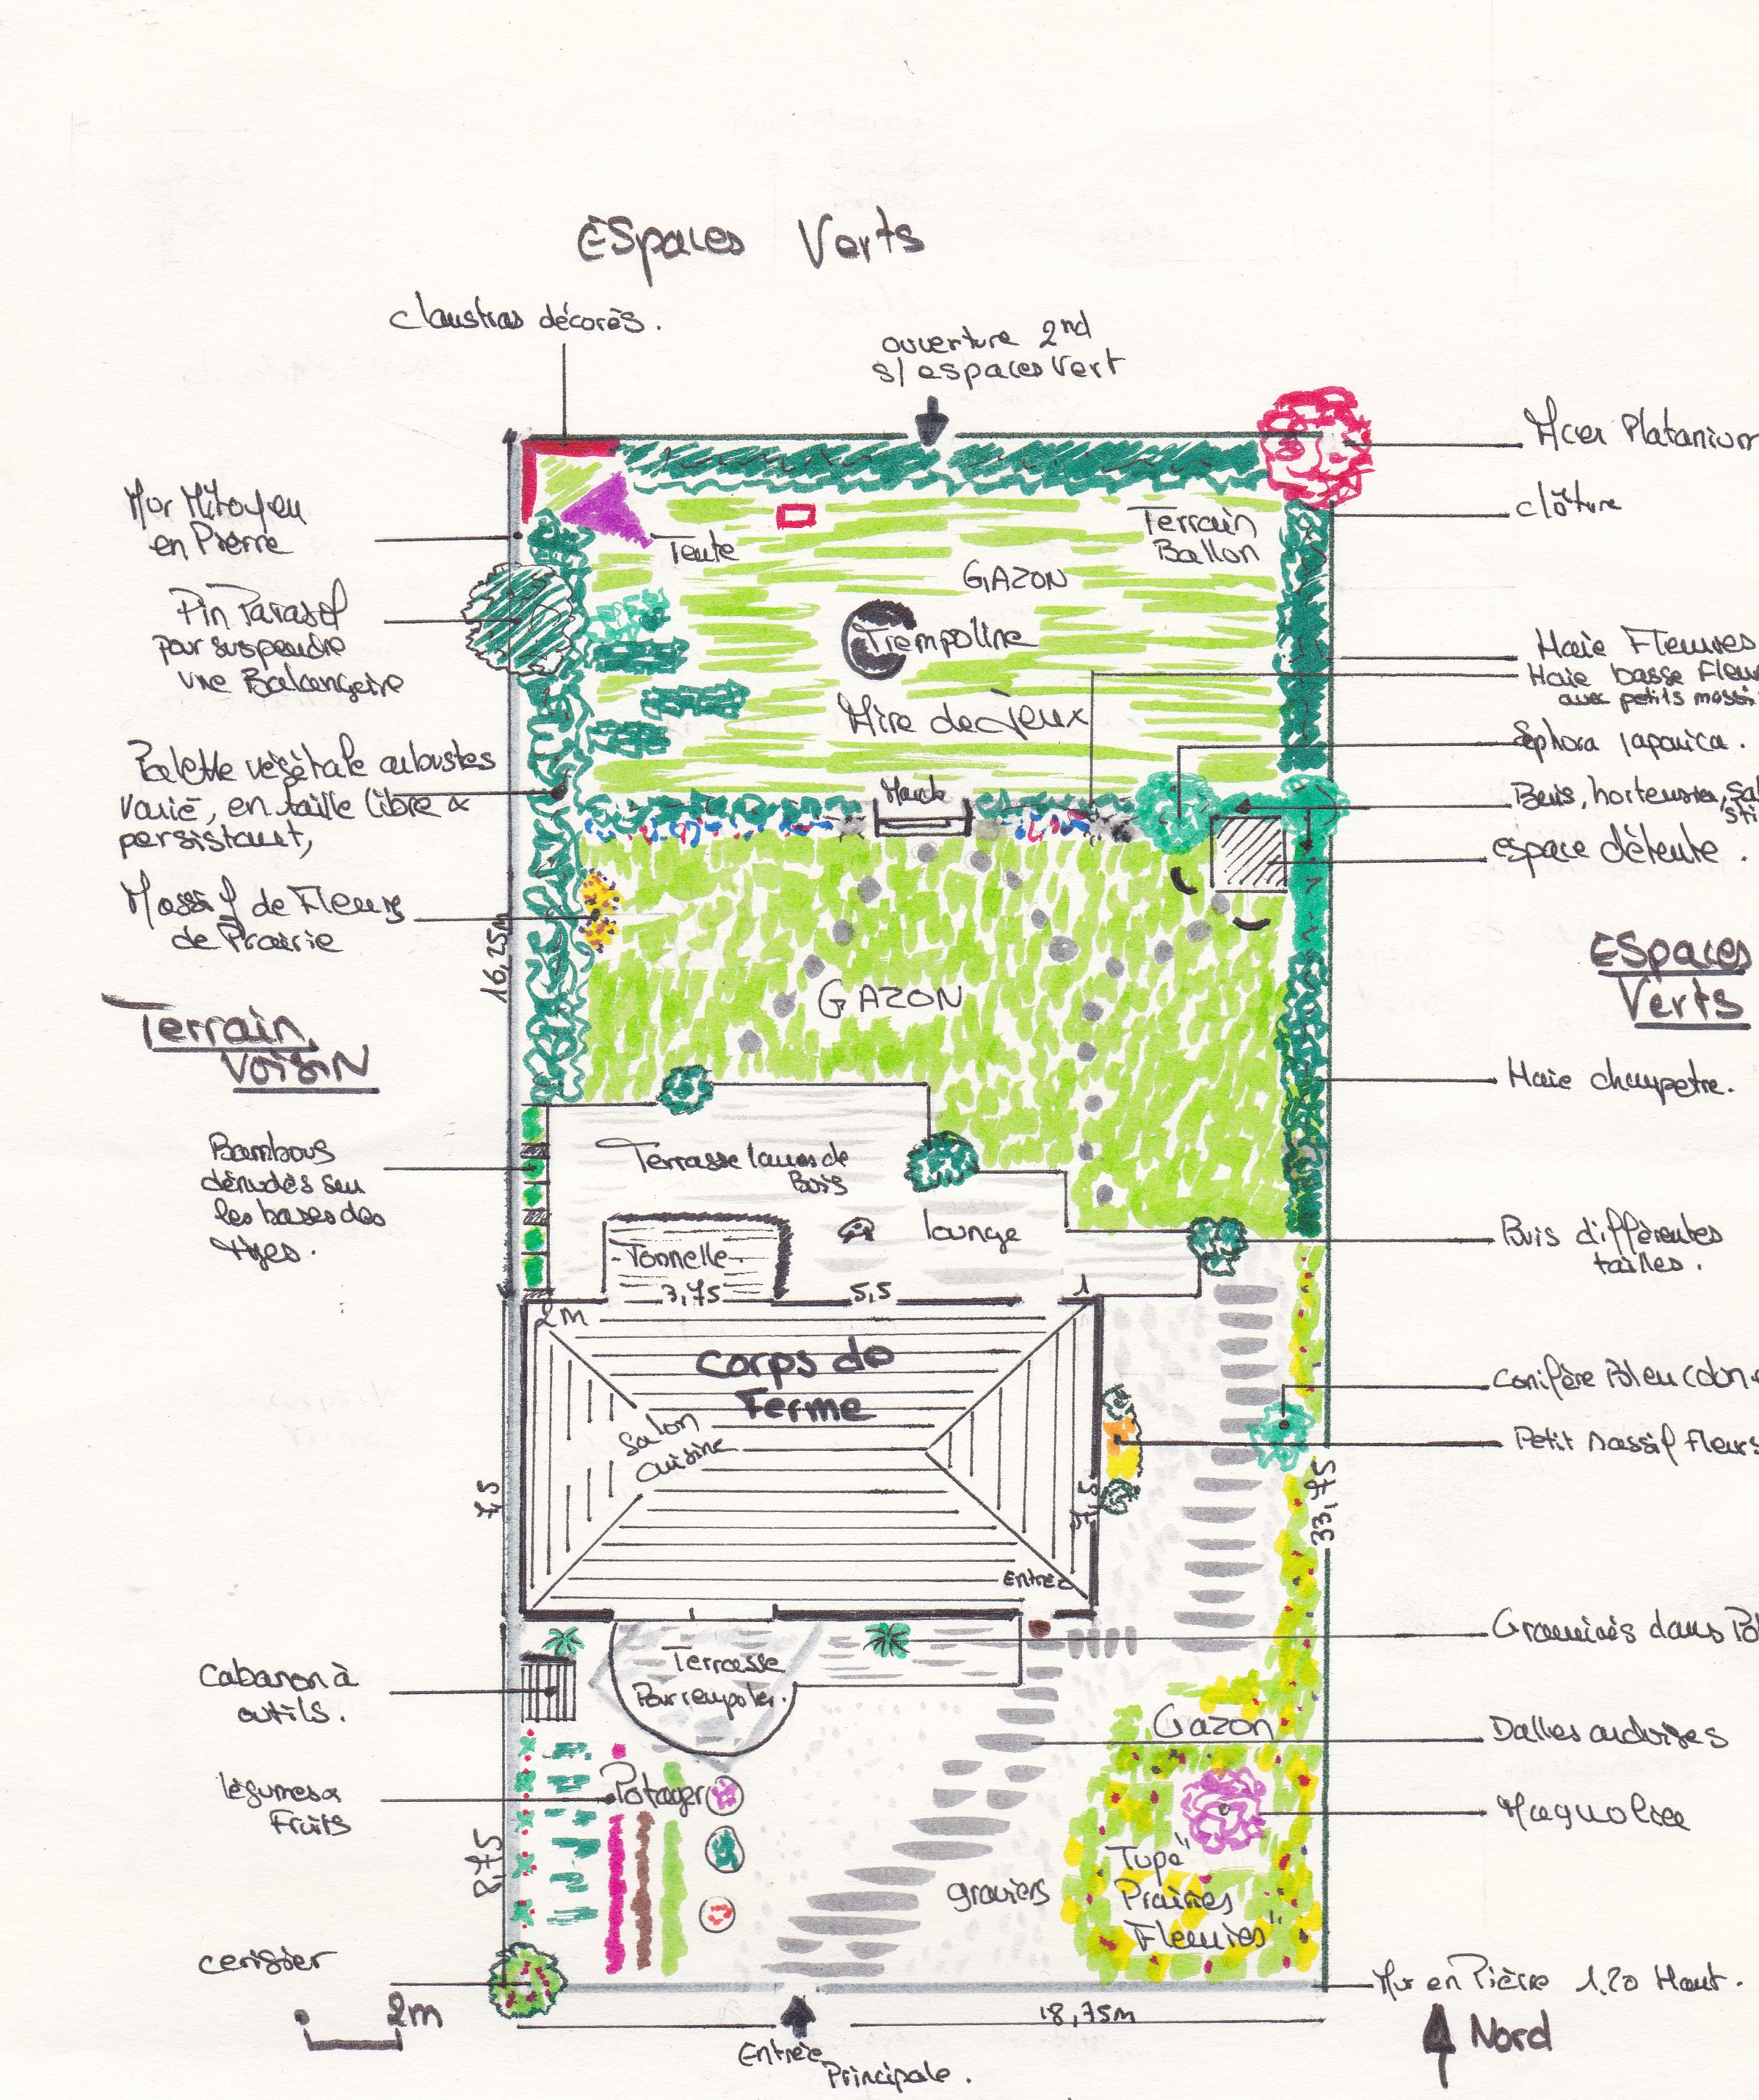 ESpaces Verts
claustras décorés.
ouverture 2nd
s/ espaces Vert
Acer Platanium
clôture
Mur Mitoyen
en Pierre
Pin Parasol
pour suspendre
une Balançoire
Tente
Terrain
Ballon
GAZON
Trempoline
Aire de jeux
Haie Fleuries
Haie basse Fleu
avec petits massi
Sophora japonica.
Palette végétale arbustes
varié, en taille libre &
persistant,
Buis, hortensia, Sa
espace détente.
Massif de Fleurs
de Prairie
16,25m
GAZON
ESpaces
Verts
Terrain
VOISIN
Haie champetre.
Bambous
dénudés sur
les bases des
tiges.
Terrasse lames de
Bois
lounge
Tonnelle
Buis différentes
tailles.
3,75
5,5
1
2m
Corps de
Ferme
Salon
Cuisine
conifère Bleu
Petit Massif fleurs
7,5
7,5
33,75
Entrée
Graminés dans Po
Terrasse
Pour rempoter.
Cabanon à
outils.
Gazon
Dalles ardoises
légumes &
Fruits
Potager
Magnolia
8,75
graviers
"Type
Prairies
Fleuries"
cerisier
Mur en Pièrre 1.20 Haut.
2m
18,75m
Nord
Entrée
Principale.